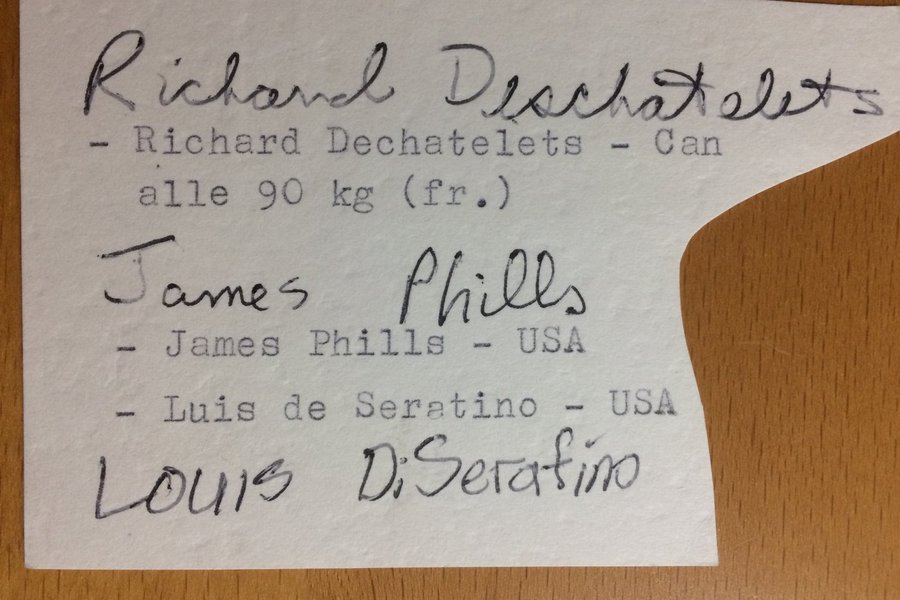 Richard Deschatelets
- Richard Dechatelets - Can
alle 90 kg (fr.)
James Phills
- James Phills - USA
- Luis de Seratino - USA
Louis DiSerafino